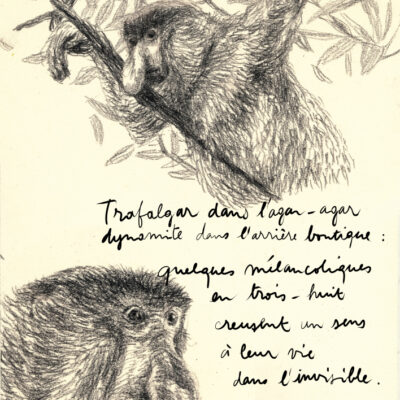 Trafalgar dans l'agar-agar
dynamite dans l'arrière boutique :
quelques mélancoliques
en trois-huit
creusent un sens
à leur vie
dans l'invisible.